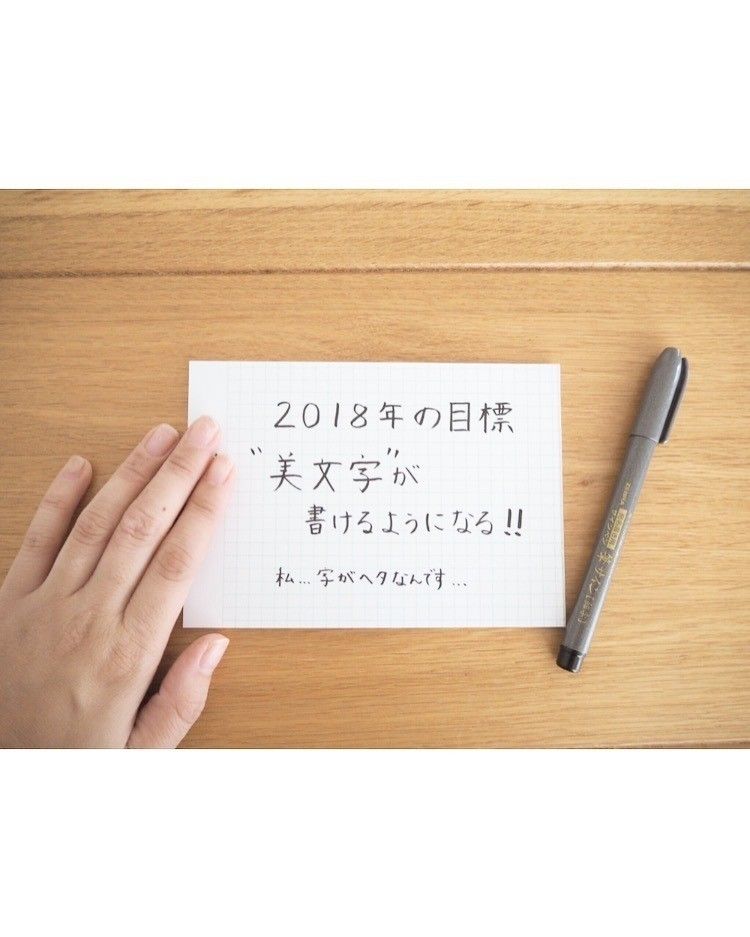 2018年の目標
"美文字"が
書けるようになる!!
私...字がヘタなんです...
ZEBRA
筆サイン